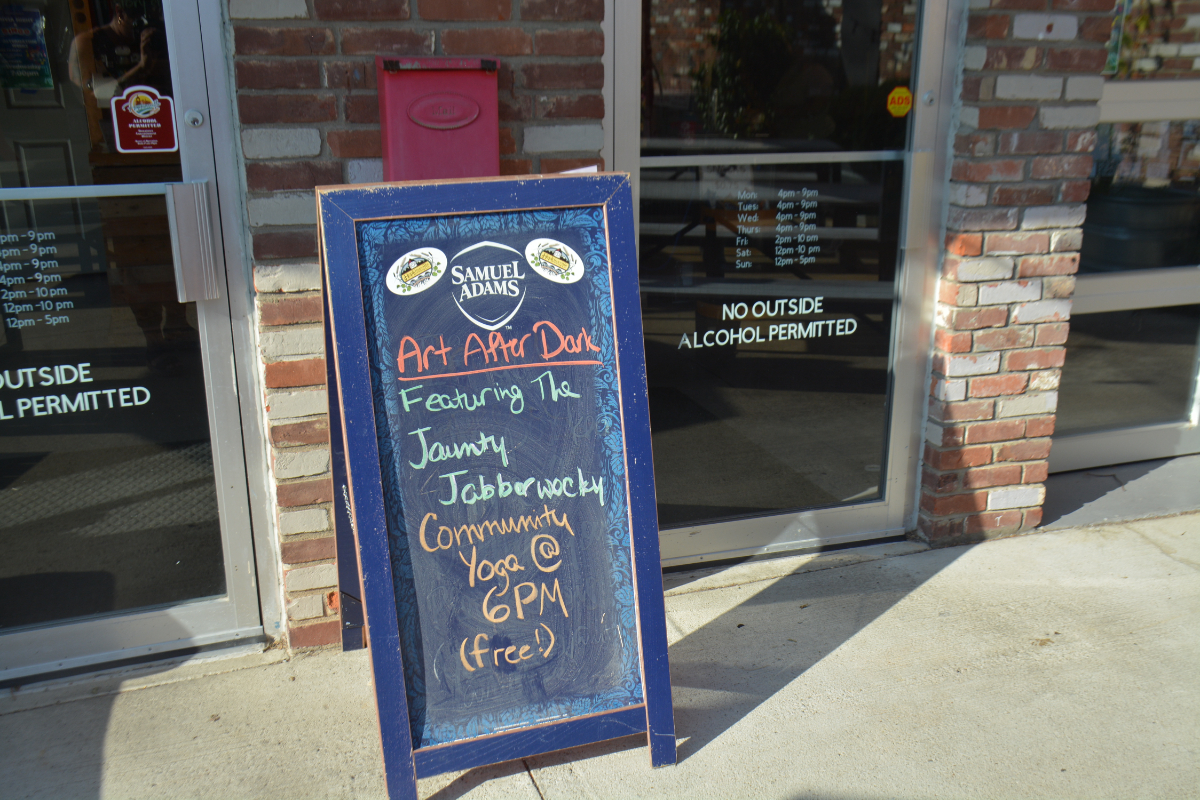 ALCOHOL
PERMITTED
ADS
pm - 9 pm
pm - 9pm
4pm - 9pm
4pm - 9pm
2pm - 10 pm
12pm - 10 pm
12pm - 5pm
OUTSIDE
L PERMITTED
SAMUEL
ADAMS
TM
Art After Dark
Featuring The
Jaunty
Jabberwocky
Community
Yoga @
6PM
(free!)
Mon: 4pm - 9pm
Tues: 4pm - 9pm
Wed: 4pm - 9pm
Thurs: 4pm - 9pm
Fri: 2pm - 10pm
Sat: 12pm - 10 pm
Sun: 12pm - 5pm
NO OUTSIDE
ALCOHOL PERMITTED